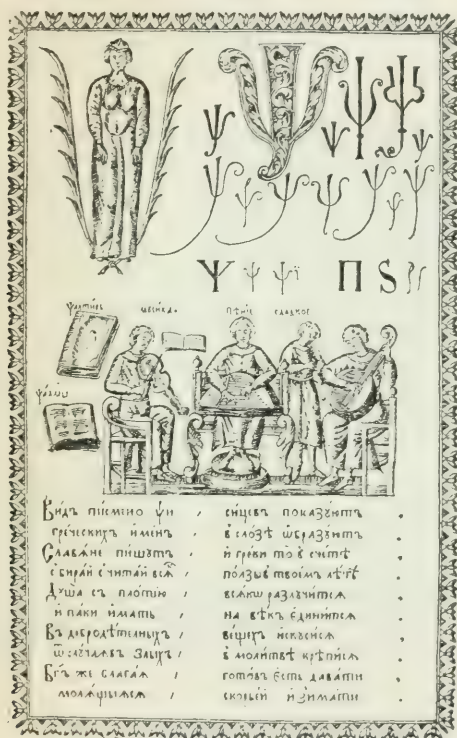 Ѱ
Ѱ ѱ ѱї П S
ѱалтирь пѣнїе сладкое
Видъ писмено ѱи , сицевъ показꙋютъ .
греческихъ именъ , в слозѣ ѡбразꙋютъ .
Славѧне пишꙋтъ , и греки то в счетѣ .
сбирай считай всѧ , ползы в твоемъ лѣтѣ .
Дꙋша съ плотїю , всѧкѡ разлꙋчитсѧ .
и паки имать , на вѣкъ единитсѧ .
Въ добродѣтелныхъ , вещехъ искꙋсисѧ .
ѿ слꙋчаевъ злыхъ , в молитвѣ крѣписѧ .
Бг҃ъ же слагаѧ , готовъ есть давати .
молѧщымсѧ , скорбей изимати .